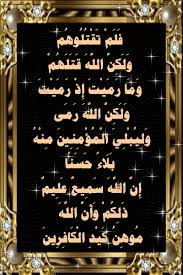 فَلَمْ تَقْتُلُوهُمْ
وَلَكِنَّ اللَّهَ قَتَلَهُمْ
وَمَا رَمَيْتَ إِذْ رَمَيْتَ
وَلَكِنَّ اللَّهَ رَمَى
وَلِيُبْلِيَ الْمُؤْمِنِينَ مِنْهُ
بَلَاءً حَسَنًا
إِنَّ اللَّهَ سَمِيعٌ عَلِيمٌ
ذَلِكُمْ وَأَنَّ اللَّهَ
مُوهِنُ كَيْدِ الْكَافِرِينَ